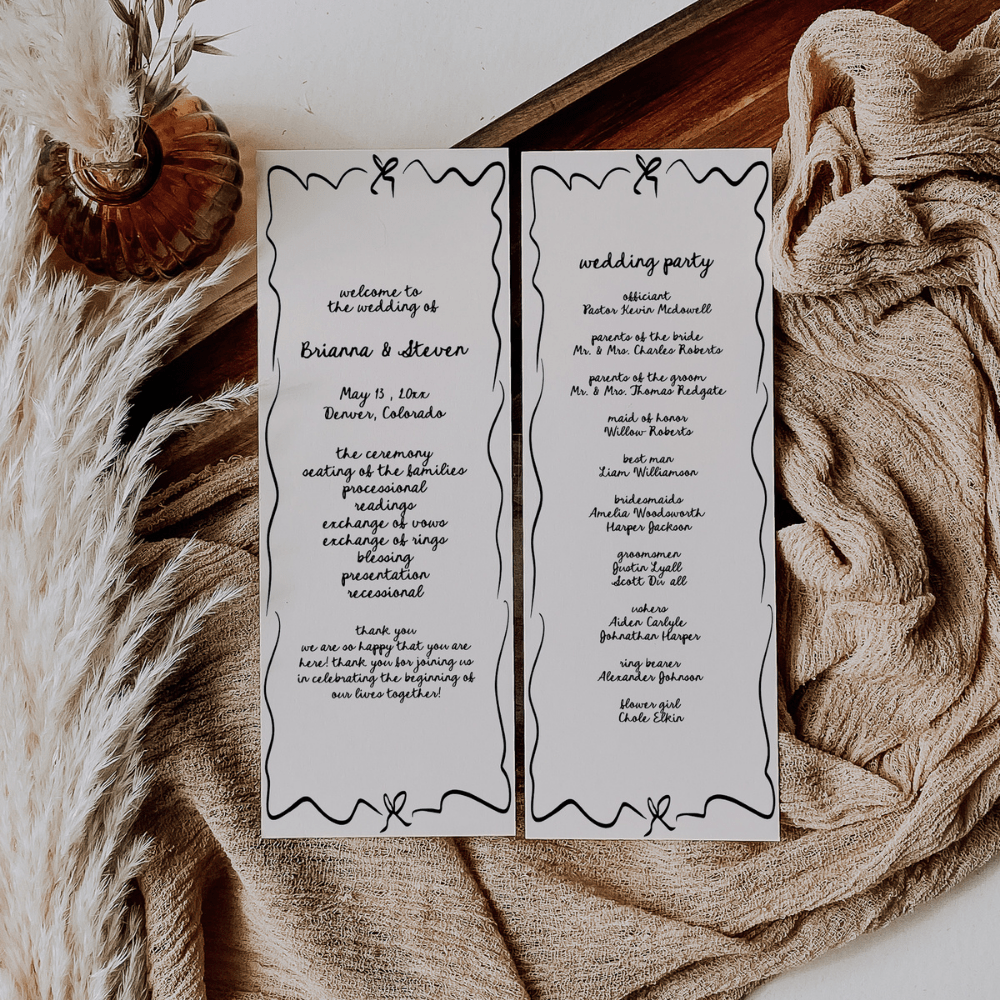 welcome to
the wedding of
Brianna & Steven
May 13 , 20xx
Denver, Colorado
the ceremony
seating of the families
processional
readings
exchange of vows
exchange of rings
blessing
presentation
recessional
thank you
we are so happy that you are
here! thank you for joining us
in celebrating the beginning of
our lives together!
wedding party
officiant
Pastor Kevin Mcdowell
parents of the bride
Mr. & Mrs. Charles Roberts
parents of the groom
Mr. & Mrs. Thomas Redgate
maid of honor
Willow Roberts
best man
Liam Williamson
bridesmaids
Amelia Woodsworth
Harper Jackson
groomsmen
Justin Lyall
Scott Du all
ushers
Aiden Carlyle
Johnathan Harper
ring bearer
Alexander Johnson
flower girl
Chole Elkin